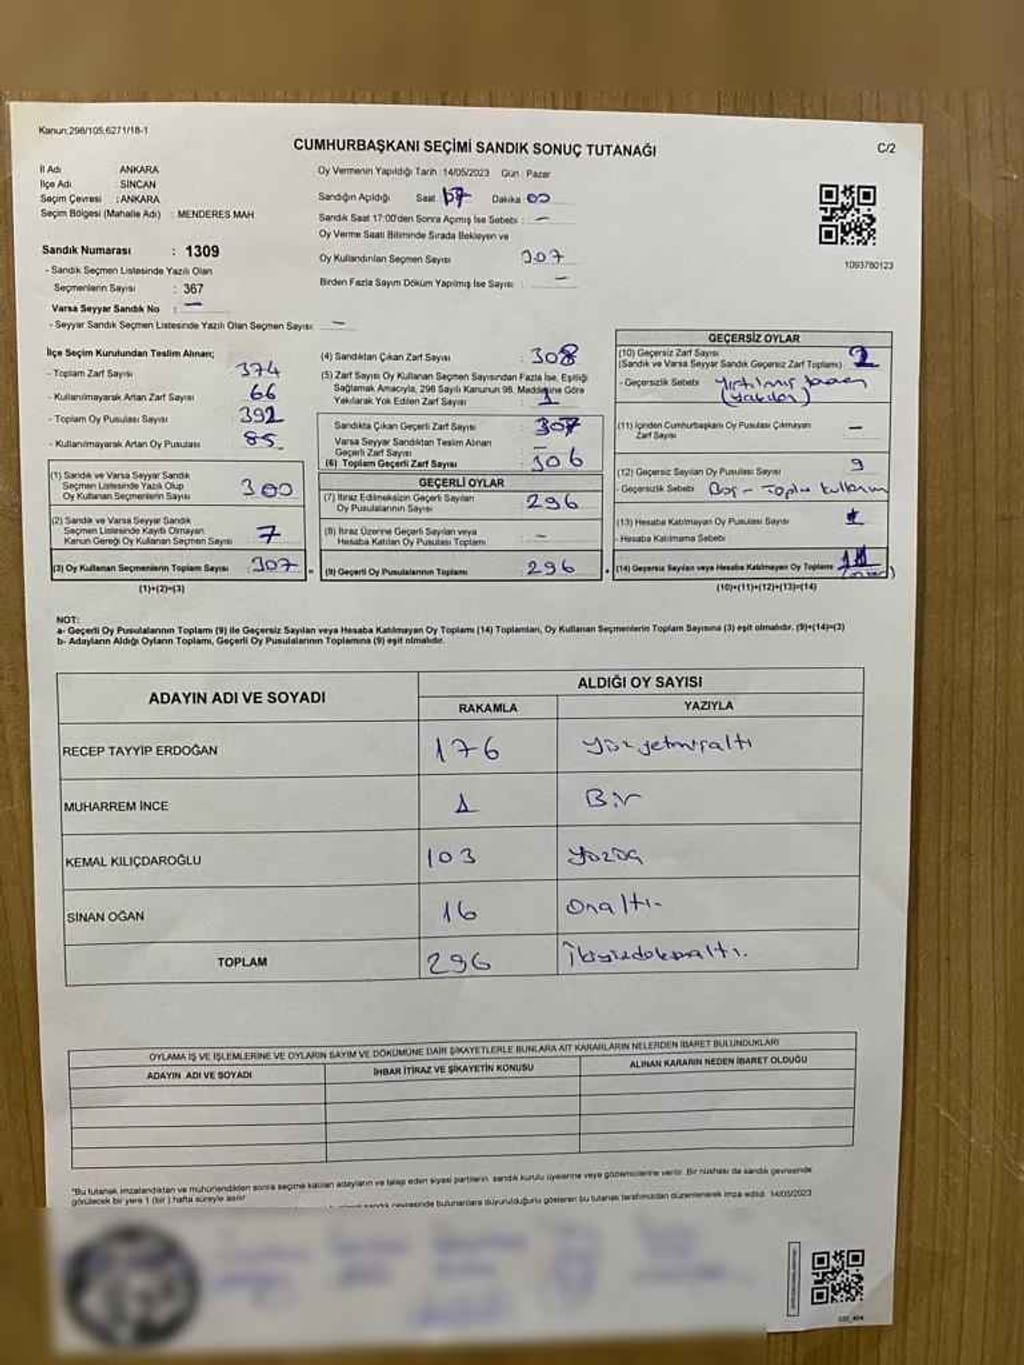 Kanun:298/105,6271/18-1
CUMHURBAŞKANI SEÇİMİ SANDIK SONUÇ TUTANAĞI
C/2
İl Adı ANKARA
İlçe Adı SİNCAN
Seçim Çevresi : ANKARA
Seçim Bölgesi (Mahalle Adı) : MENDERES MAH
Sandık Numarası : 1309
- Sandık Seçmen Listesinde Yazılı Olan
Seçmenlerin Sayısı : 367
Varsa Seyyar Sandık No —
- Seyyar Sandık Seçmen Listesinde Yazılı Olan Seçmen Sayısı: —
Oy Vermenin Yapıldığı Tarih :14/05/2023 Gün : Pazar
Sandığın Açıldığı Saat Dakika 00
Sandık Saat 17:00'den Sonra Açmış İse Sebebi : —
Oy Verme Saati Bitiminde Sırada Bekleyen ve
Oy Kullandırılan Seçmen Sayısı 307
Birden Fazla Sayım Döküm Yapılmış İse Sayısı : —
1093780123
İlçe Seçim Kurulundan Teslim Alınan;
- Toplam Zarf Sayısı 374
- Kullanılmayarak Artan Zarf Sayısı 66
- Toplam Oy Pusulası Sayısı 392
- Kullanılmayarak Artan Oy Pusulası 85
(1) Sandık ve Varsa Seyyar Sandık
Seçmen Listesinde Yazılı Olup
Oy Kullanan Seçmenlerin Sayısı 300
(2) Sandık ve Varsa Seyyar Sandık
Seçmen Listesinde Kayıtlı Olmayan
Kanun Gereği Oy Kullanan Seçmen Sayısı 7
(3) Oy Kullanan Seçmenlerin Toplam Sayısı : 307
(1)+(2)=(3)
(4) Sandıktan Çıkan Zarf Sayısı : 308
(5) Zarf Sayısı Oy Kullanan Seçmen Sayısından Fazla İse, Eşitliği
Sağlamak Amacıyla, 298 Sayılı Kanunun 98. Maddesine Göre
Yakılarak Yok Edilen Zarf Sayısı 1
Sandıkta Çıkan Geçerli Zarf Sayısı : 307
Varsa Seyyar Sandıktan Teslim Alınan
Geçerli Zarf Sayısı —
(6) Toplam Geçerli Zarf Sayısı 306
GEÇERLİ OYLAR
(7) İtiraz Edilmeksizin Geçerli Sayılan
Oy Pusulalarının Sayısı : 296
(8) İtiraz Üzerine Geçerli Sayılan veya
Hesaba Katılan Oy Pusulası Toplamı —
(9) Geçerli Oy Pusulalarının Toplamı : 296
GEÇERSİZ OYLAR
(10) Geçersiz Zarf Sayısı
(Sandık ve Varsa Seyyar Sandık Geçersiz Zarf Toplamı) :
- Geçersizlik Sebebi Yırtılmış
(11) İçinden Cumhurbaşkanı Oy Pusulası Çıkmayan
Zarf Sayısı —
(12) Geçersiz Sayılan Oy Pusulası Sayısı 9
- Geçersizlik Sebebi Boş - Toplu kullanım
(13) Hesaba Katılmayan Oy Pusulası Sayısı
- Hesaba Katılmama Sebebi
(14) Geçersiz Sayılan veya Hesaba Katılmayan Oy Toplamı
(10)+(11)+(12)+(13)=(14)
NOT:
a- Geçerli Oy Pusulalarının Toplamı (9) ile Geçersiz Sayılan veya Hesaba Katılmayan Oy Toplamı (14) Toplamları, Oy Kullanan Seçmenlerin Toplam Sayısına (3) eşit olmalıdır. (9)+(14)=(3)
b- Adayların Aldığı Oyların Toplamı, Geçerli Oy Pusulalarının Toplamına (9) eşit olmalıdır.
ADAYIN ADI VE SOYADI ALDIĞI OY SAYISI
RAKAMLA YAZIYLA
RECEP TAYYİP ERDOĞAN 176 yüzyetmişaltı
MUHARREM İNCE 1 Bir
KEMAL KILIÇDAROĞLU 103 yüzüç
SİNAN OĞAN 16 Onaltı
TOPLAM 296 İkiyüzdoksanaltı.
OYLAMA İŞ VE İŞLEMLERİNE VE OYLARIN SAYIM VE DÖKÜMÜNE DAİR ŞİKAYETLERLE BUNLARA AİT KARARLARIN NELERDEN İBARET BULUNDUKLARI
ADAYIN ADI VE SOYADI İHBAR İTİRAZ VE ŞİKAYETİN KONUSU ALINAN KARARIN NEDEN İBARET OLDUĞU
"Bu tutanak imzalandıktan ve mühürlendikten sonra seçime katılan adayların ve talep eden siyasi partilerin sandık kurulu üyelerine veya gözlemcilerine verilir. Bir nüshası da sandık çevresinde
görülecek bir yere 1 (bir) hafta süreyle asılır
sandık çevresinde bulunanlara duyurulduğunu gösteren bu tutanak tarafımızdan düzenlenerek imza edildi. 14/05/2023